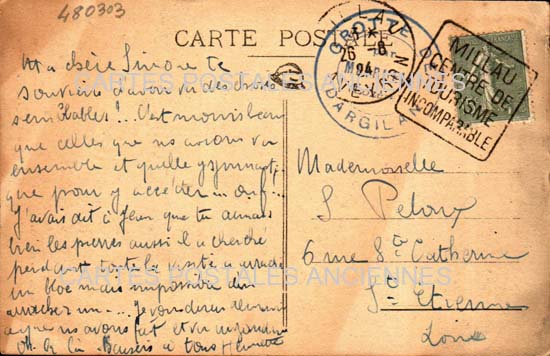 480303
CARTE POSTALE
GROTTE
DARGILAN
MILLAU
CENTRE DE
TOURISME
INCOMPARABLE
Ma chère Simone te
souviens d'avoir vu des choses
semblables! C'est moins beau
que celles que nous avions vu
ensemble et quelle gymnastique
que pour y accéder... ouf...
J'avais dit à Jean que tu aimais
bien les pierres aussi il a cherché
pendant toute la visite à arracher
un bloc mais impossible d'en
arracher un... Je voudrais
que nous avons fait et
Baisers à tous Henriette
Mademoiselle
S Peloux
6 rue Ste Catherine
St Etienne
Loire
CARTES POSTALES ANCIENNES
CARTES POSTALES ANCIENNES